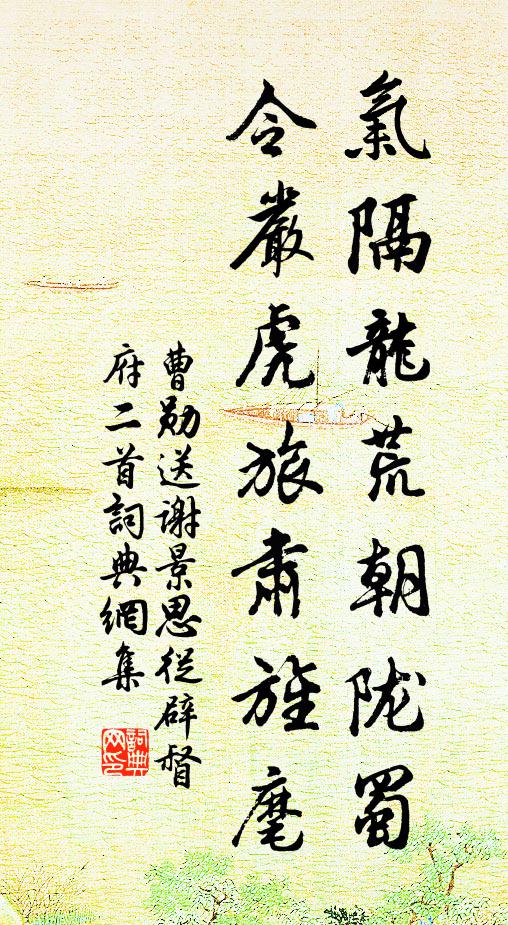 氣隔龍荒朝陇蜀
令嚴虎旅肅旌麾
曹勛送谢景思從辟督
府二首詞典網集
詞典网印